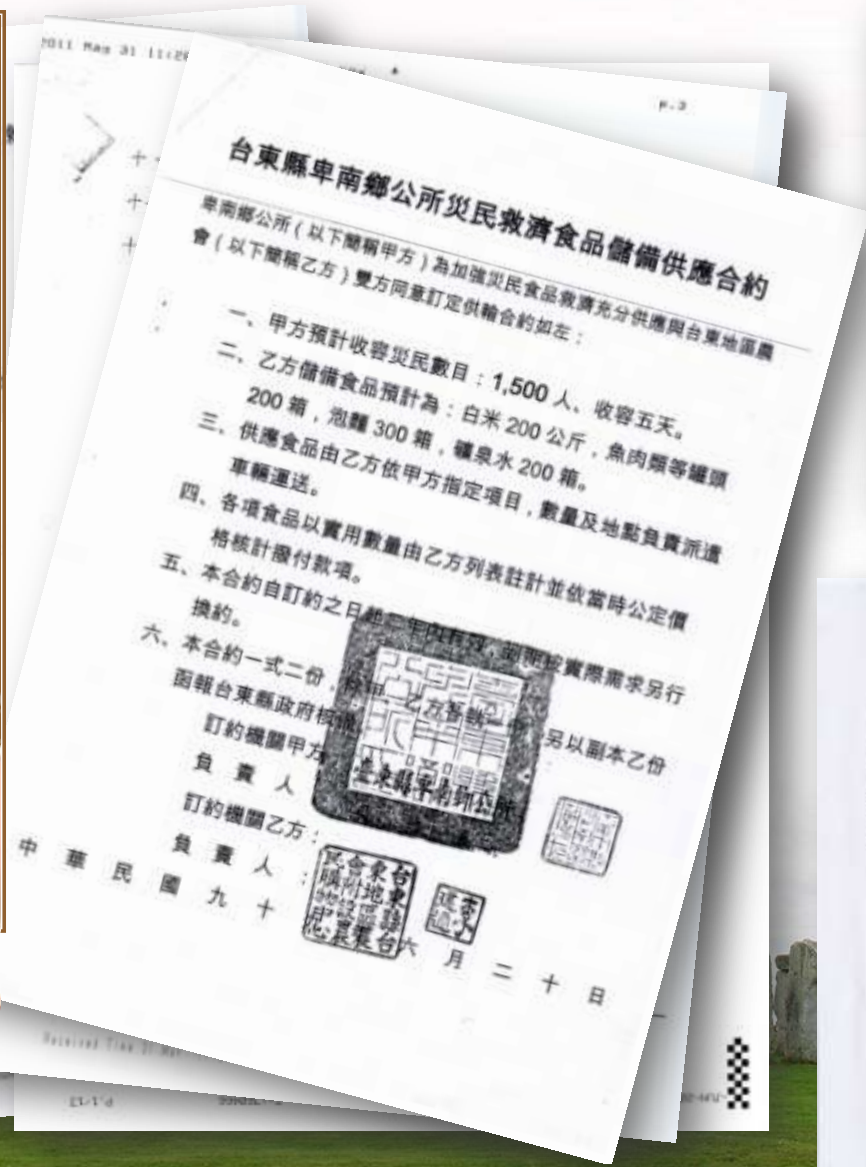 2011 May 31 11:28
p.3
台東縣卑南鄉公所災民救濟食品儲備供應合約
卑南鄉公所(以下簡稱甲方)為加強災民食品救濟充分供應與台東地區農
會(以下簡稱乙方)雙方同意訂定供輸合約如左:
一、甲方預計收容災民數目:1,500 人、收容五天。
二、乙方儲備食品預計為:白米 200 公斤,魚肉類等罐頭
200 箱,泡麵 300 箱,礦泉水 200 箱。
三、供應食品由乙方依甲方指定項目,數量及地點負責派遣
車輛運送。
四、各項食品以實用數量由乙方列表註計並依當時公定價
格核計撥付款項。
五、本合約自訂約之日起 年內有效,屆期按實際需求另行
換約。
六、本合約一式二份, 乙方各執一 另以副本乙份
函報台東縣政府核備
訂約機關甲方
臺東縣卑南鄉公所
負責人
訂約機關乙方:
負責人:
中華民國九十 六月二十日
Received Time 31 May